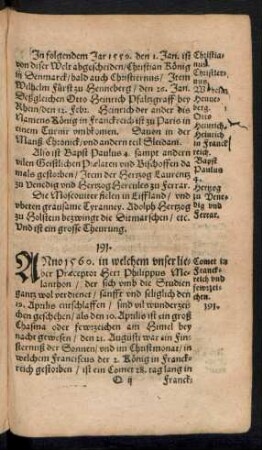 In folgendem Jar 1559. den 1. Jan. ist
von diser Welt abgescheiden / Christian König
in Denmarck / bald auch Christiernus / Item
Wilhelm Fürst zu Henneberg / den 26. Jan.
Deßgleichen Otto Heinrich Pfaltzgraff bey
Rhein / den 12. Febr. Heinrich der ander des
Namens König in Franckreich ist zu Paris in
einem Turnir umbkomen. Davon in der
Manß. Chronick / und andern teil Sleidani.
Also ist Bapst Paulus 4. sampt andern
vielen Geistlichen Prælaten und Bischoffen da
mals gestorben / Item der Hertzog Laurentz
zu Venedig und Hertzog Hercules zu Ferrar.
Die Moscouiter fielen in Eiffland / und
ubeten grausame Tyranney. Adolph Hertzog
zu Holstein bezwingt die Ditmarschen / etc.
Und ist ein grosse Thewrung.
Christia-
nus
Christier-
nus
Henne-
berg.
Otto
Heinrich.
Heinrich
in Franck
reich.
Bapst
Paulus
4.
Hertzog
zu Vene-
dig und
Ferrar.
191.
ANno 1560. in welchem unser lie-
ber Præceptor Herr Philippus Me-
lanthon / der sich umb die Studien
gantz wol verdienet / sanfft und seliglich den
19. Aprilis entschlaffen / sind vil wunderzei-
chen geschehen / als den 10. Aprilis ist ein groß
Chasma oder fewrzeichen am Himel bey
nacht gewesen / den 21. Augusti war ein Fin-
sternuß der Sonnen / und im Christmonat / in
welchem Franciscus der 2. König in Franck-
reich gestorben / ist ein Comet 28. tag lang in
Comet in
Franck-
reich und
fewrzei-
chen.
191.
O ij Franck-